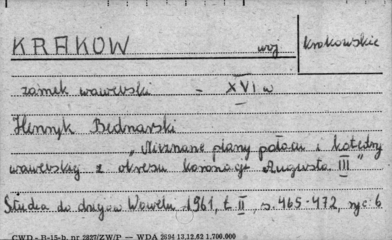 KRAKÓW woj krakowskie
zamek wawelski - XVI w
Henryk Bednarski
"Nieznane plany pałacu i katedry
wawelskiej z okresu koronacji Augusta III"
Studia do dziejów Wawelu 1961, t. II, s. 465-472, ryc 6
CWD - B-15-b, nr 2827/ZW/P — WDA 2694 13.12.62 1.700.000